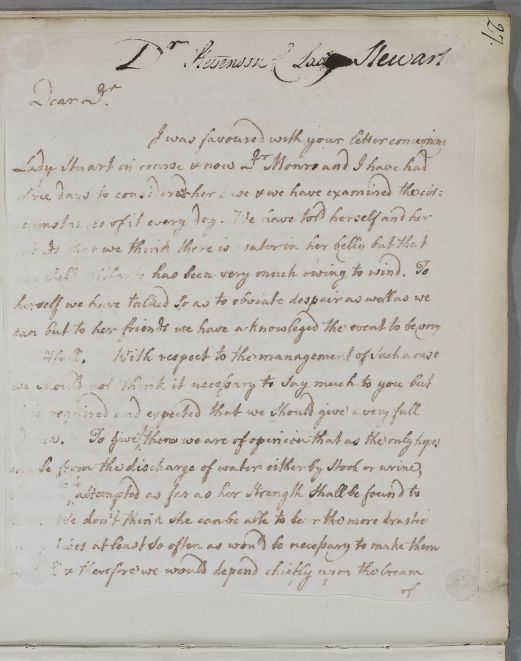 27.
Dr Stevenson & Lady Stewart
Dear Dr.
I was favoured with your letter concerning
Lady Stuart in course & now Dr Monro and I have had
three days to consider her case & we have examined the cir=
cumstances of it every day. We have told herself and her
that we think there is water in her belly but that
has been very much owing to wind. To
herself we have talked so as to obviate despair as well as we
can but to her friends we have acknowleged the event to be very
With respect to the management of such a case
we should not think it necessary to say much to you but
required and expected that we should give a very full
To give them we are of opinion that as the only hopes
be from the discharge of water either by stool or urine,
attempted as far as her strength shall be found to
We don't think she can be able to bear the more drastic
at least so often as would be necessary to make them
& therefore we would depend chiefly upon the Cream
of